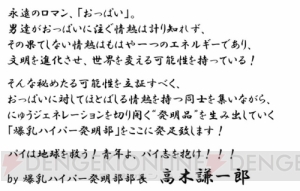 永遠のロマン、「おっぱい」。
男達がおっぱいに注ぐ情熱は計り知れず、
その果てしない情熱はもはや一つのエネルギーであり、
文明を進化させ、世界を変える可能性を持っている!
そんな秘めたる可能性を立証すべく、
おっぱいに対してほとばしる情熱を持つ同士を集いながら、
にゅうジェネレーションを切り開く“発明品”を生み出していく
「爆乳ハイパー発明部」をここに発足致します!
パイは地球を救う!青年よ、パイ志を抱け!!!
by 爆乳ハイパー発明部部長 高木謙一郎